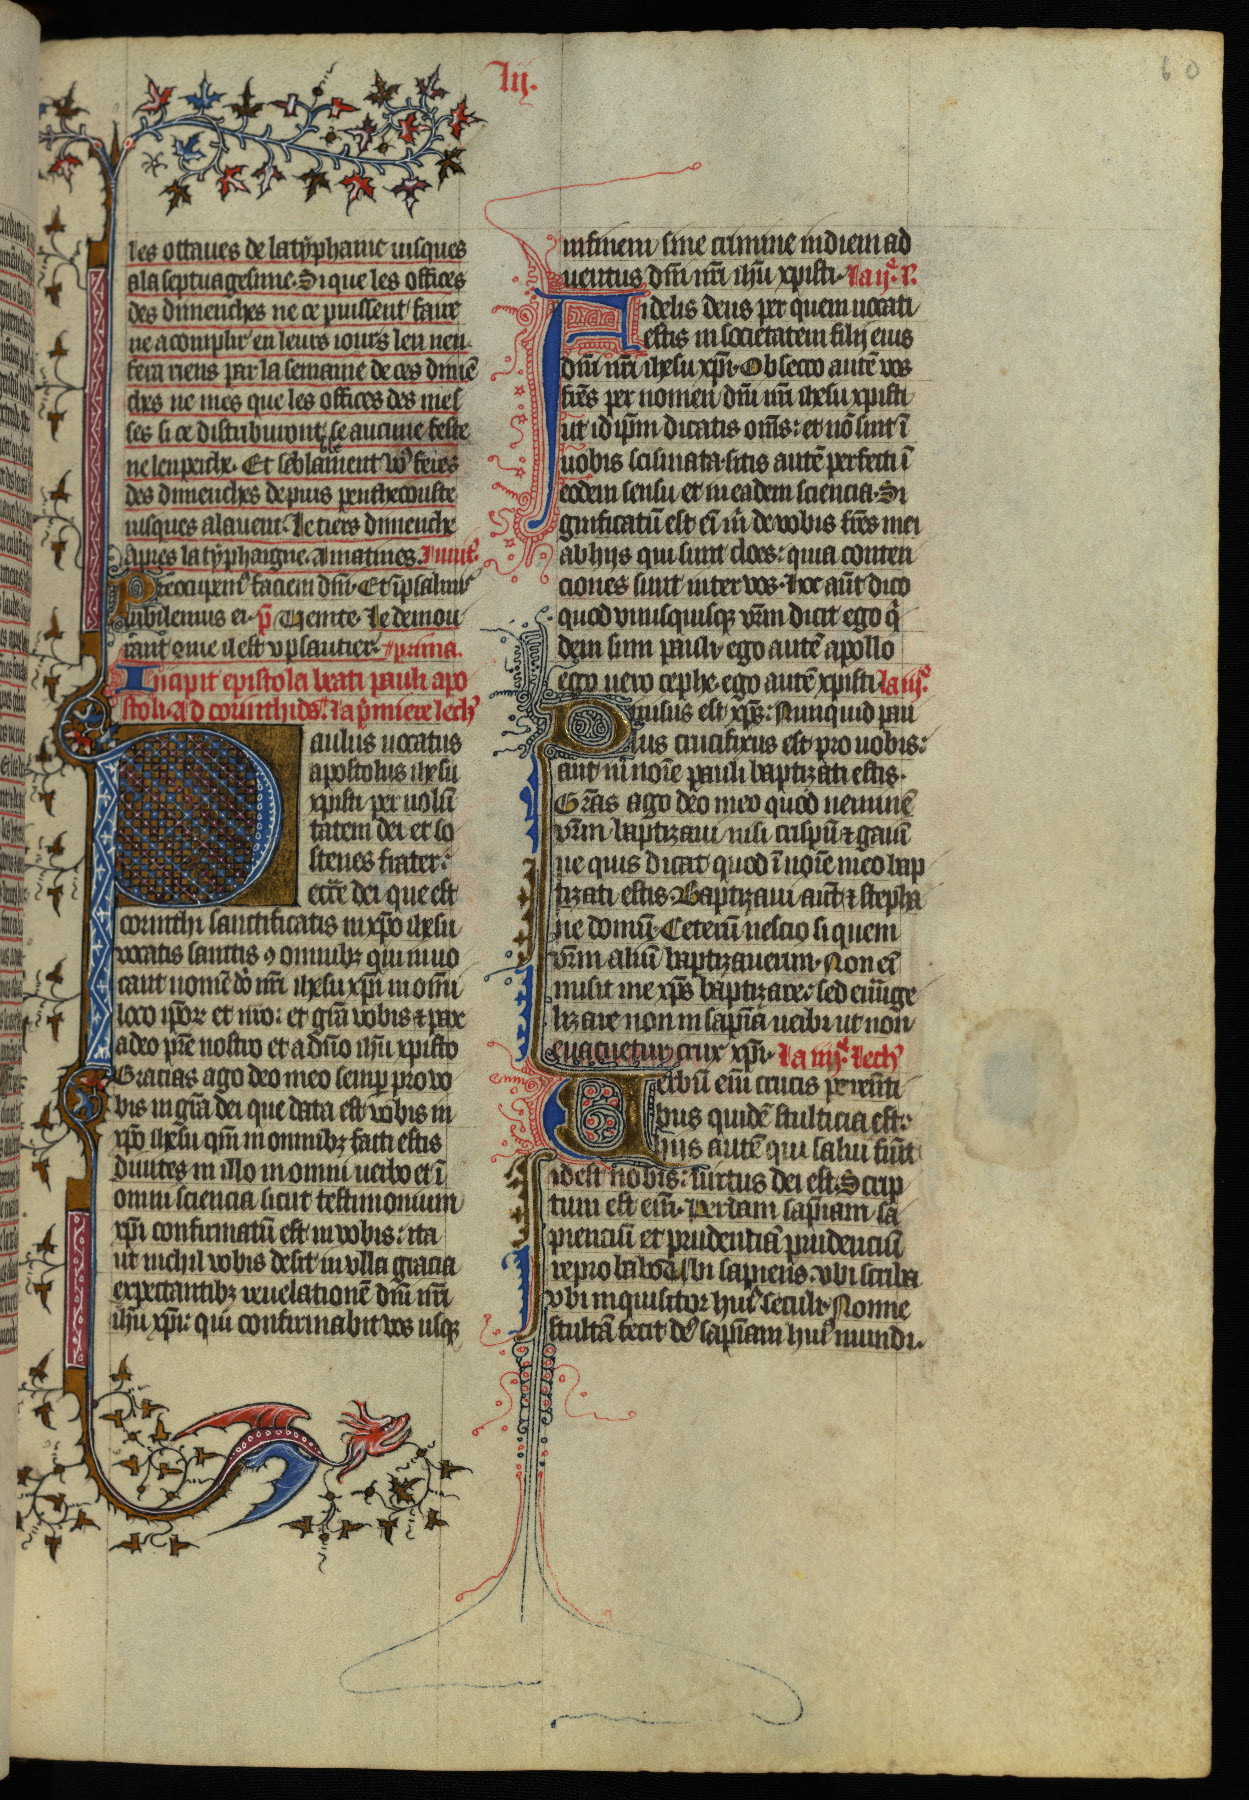 60
lij.
les ottaues de latyphanie iusques
ala septuagesime. Si que les offices
des dimenches ne ce puissent faire
ne acomplir en leurs iours len nen
fera riens par la semaine de ces dimē
ches ne mes que les offices des mes
ses si ce distriburont se aucune feste
ne lenpeche. Et
des dimenches depuis penthecouste
iusques alauent. Le tiers dimenche
apres latyphaigne. A matines. Inuit.
Preocupem9 faciem dn̄i. Et ī psalmis
iubilemus ei. p̄ Uenite. Le demou
rant
Incipit epistola beati pauli apo
stoli. Ad corinthios. la p̄miere lech
Paulus uocatus
apostolus ihesu
xpisti per uolū
tatem dei et so
stenes frater:
ecc̄e dei que est
corinthi sanctificatis in xp̄o ihesu
uocatis sanctis 9 omnibz qui inuo
cant nomē dn̄i nr̄i ihesu xp̄i in om̄i
loco ipor et nr̄o: et gr̄a vobis & pax
adeo pr̄e nostro et a dn̄o ihū xpisto
Gracias ago deo meo semp pro vo
bis in gr̄a dei que data est vobis in
xp̄o ihesu qm̄ in omnibz facti estis
diuites in illo in omni uerbo et ī
omni sciencia sicut testimonium
xp̄i confirmatū est in vobis: ita
ut nichil vobis desit in ulla gracia
expectantibz reuelationē dn̄i nr̄i
ihū xp̄i: qui confirmabit vos usqz
infinem sine crimine in diem ad
uentus dn̄i nr̄i ihū xpisti. la ij. l.
Fidelis deus per quem uocati
estis in societatem filij eius
dn̄i nr̄i ihesu xp̄i. Obsecro autē vos
fr̄es per nomen dn̄i nr̄i ihesu xpisti
ut id ip̄m dicatis om̄s: et nō sint ī
uobis scismata. sitis autē perfecti ī
eodem sensu et in eadem sciencia. Si
gnificatū est eī m̄ de vobis fr̄es mei
ab hijs qui sunt cloes: quia conten
ciones sunt inter vos. hoc aūt dico
quod vnusquisqz vr̄m dicit ego q̄
dem sum pauli. ego autē apollo
ego uero cephe. ego autē xpisti la iij.
Diuisus est xp̄s: Nunquid pau
lus crucifixus est pro uobis:
aut in noīe pauli baptizati estis.
Gr̄as ago deo meo quod neminē
vr̄m baptizaui nisi crispū & gaiū
ne quis dicat quod ī noīe meo bap
tizati estis. Baptizaui aūt & stepha
ne domū. Ceterū nescio si quem
vr̄m aliū baptizauerim. Non eī
misit me xp̄s baptizare: sed euuge
lizare non in sapīa uerbi ut non
euacuetur crux xp̄i. la iiij. lech
Uerbū eīm crucis pereūti
bus quidē stulticia est:
hijs autē qui salui fiūt
idest nobis: uirtus dei est. Scrip
tum est eīm. Perdam sapīam sa
pienciū et prudentiā prudenciū
reprobabo. Vbi sapiens. vbi scriba
vbi inquisitor hui9 seculi. Nonne
stultā fecit de9 sapīam hui9 mundi.